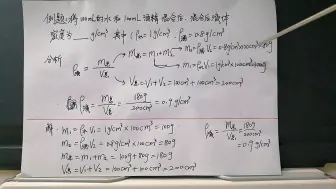 例题:将100mL的水和100mL酒精混合后,混合后液体
密度为____g/cm³ 其中(ρ水=1g/cm³ ρ酒=0.8g/cm³
分析
m总=m₁+m₂
m₂=ρ酒V₂=0.8g/cm³×100cm³=80g
m₁=ρ水V₁=1g/cm³×100cm³=100g
ρ混=m总/V总
V总=V₁+V₂=100cm³+100cm³=200cm³
ρ混=m总/V总=180g/200cm³=0.9g/cm³
解:m₁=ρ水V₁=1g/cm³×100cm³=100g
m₂=ρ酒V₂=0.8g/cm³×100cm³=80g
m总=m₁+m₂=100g+80g=180g
V总=V₁+V₂=100cm³+100cm³=200cm³
ρ混=m总/V总=180g/200cm³
=0.9g/cm³